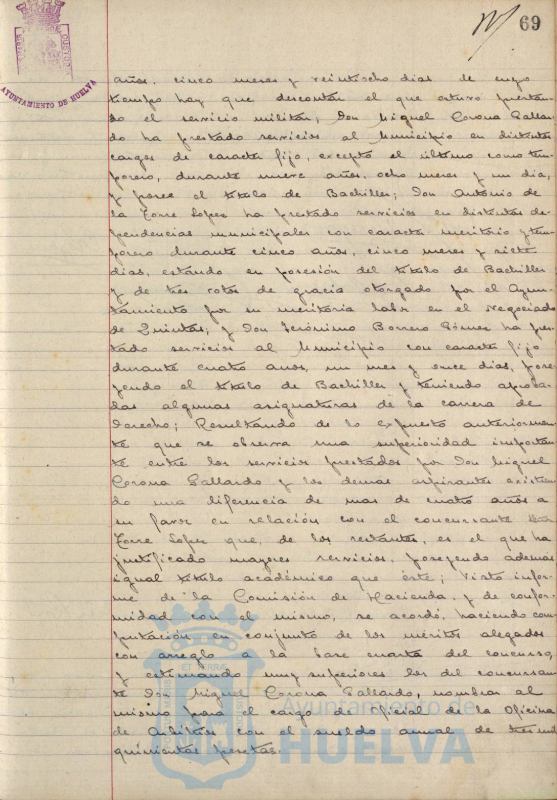 69
AYUNTAMIENTO DE HUELVA
años, cinco meses y veintiocho dias de cuyo
tiempo hay que descontar el que estuvo prestan-
do el servicio militar; Don Miguel Corona Gallar-
do ha prestado servicios al Municipio en distintos
cargos de caracter fijo, excepto el último como tem-
porero, durante nueve años, ocho meses y un dia,
y posee el titulo de Bachiller; Don Antonio de
la Torre Lopez ha prestado servicios en distintas de-
pendencias municipales con caracter meritorio y tem-
porero durante cinco años, cinco meses y siete
dias, estando en posesión del titulo de Bachiller
y de tres votos de gracia otorgado por el Ayun-
tamiento por su meritoria labor en el Negociado
de Quintas; y Don Jerónimo Borrero Gómez ha pres-
tado servicios al Municipio con caracter fijo
durante cuatro años, un mes y once dias, pose-
yendo el titulo de Bachiller y teniendo aproba-
das algunas asignaturas de la carrera de
Derecho; Resultando de lo expuesto anteriormen-
te que se observa una superioridad importan-
te entre los servicios prestados por Don Miguel
Corona Gallardo y los demas aspirantes existien-
do una diferencia de mas de cuatro años a
su favor en relación con el concursante
Torre Lopez que, de los restantes, es el que ha
justificado mayores servicios, poseyendo ademas
igual titulo académico que éste; Visto infor-
me de la Comisión de Hacienda, y de confor-
midad con el mismo, se acordó, haciendo com-
putación en conjunto de los méritos alegados
con arreglo a la base cuarta del concurso,
y estimando muy superiores los del concursan-
te Don Miguel Corona Gallardo, nombrar al
mismo para el cargo de Oficial de la Oficina
de Arbitrios con el sueldo anual de tres mil
quinientas pesetas.
Ayuntamiento de
HUELVA